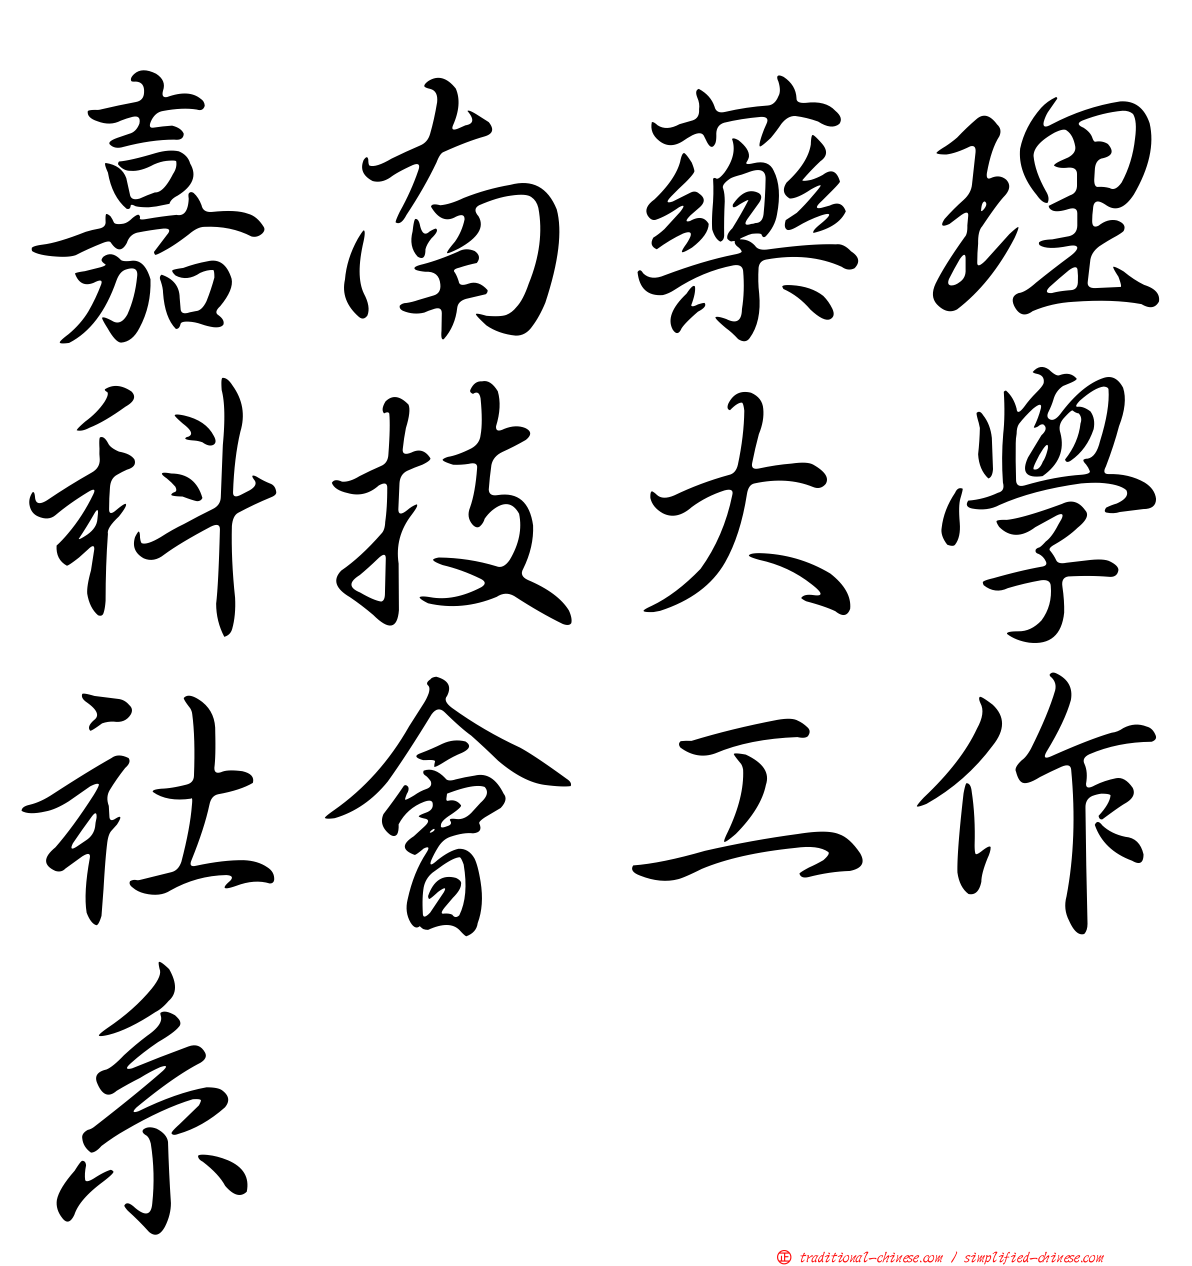 嘉南藥理
科技大學
社會工作
系
㊣ traditional-chinese.com / simplified-chinese.com